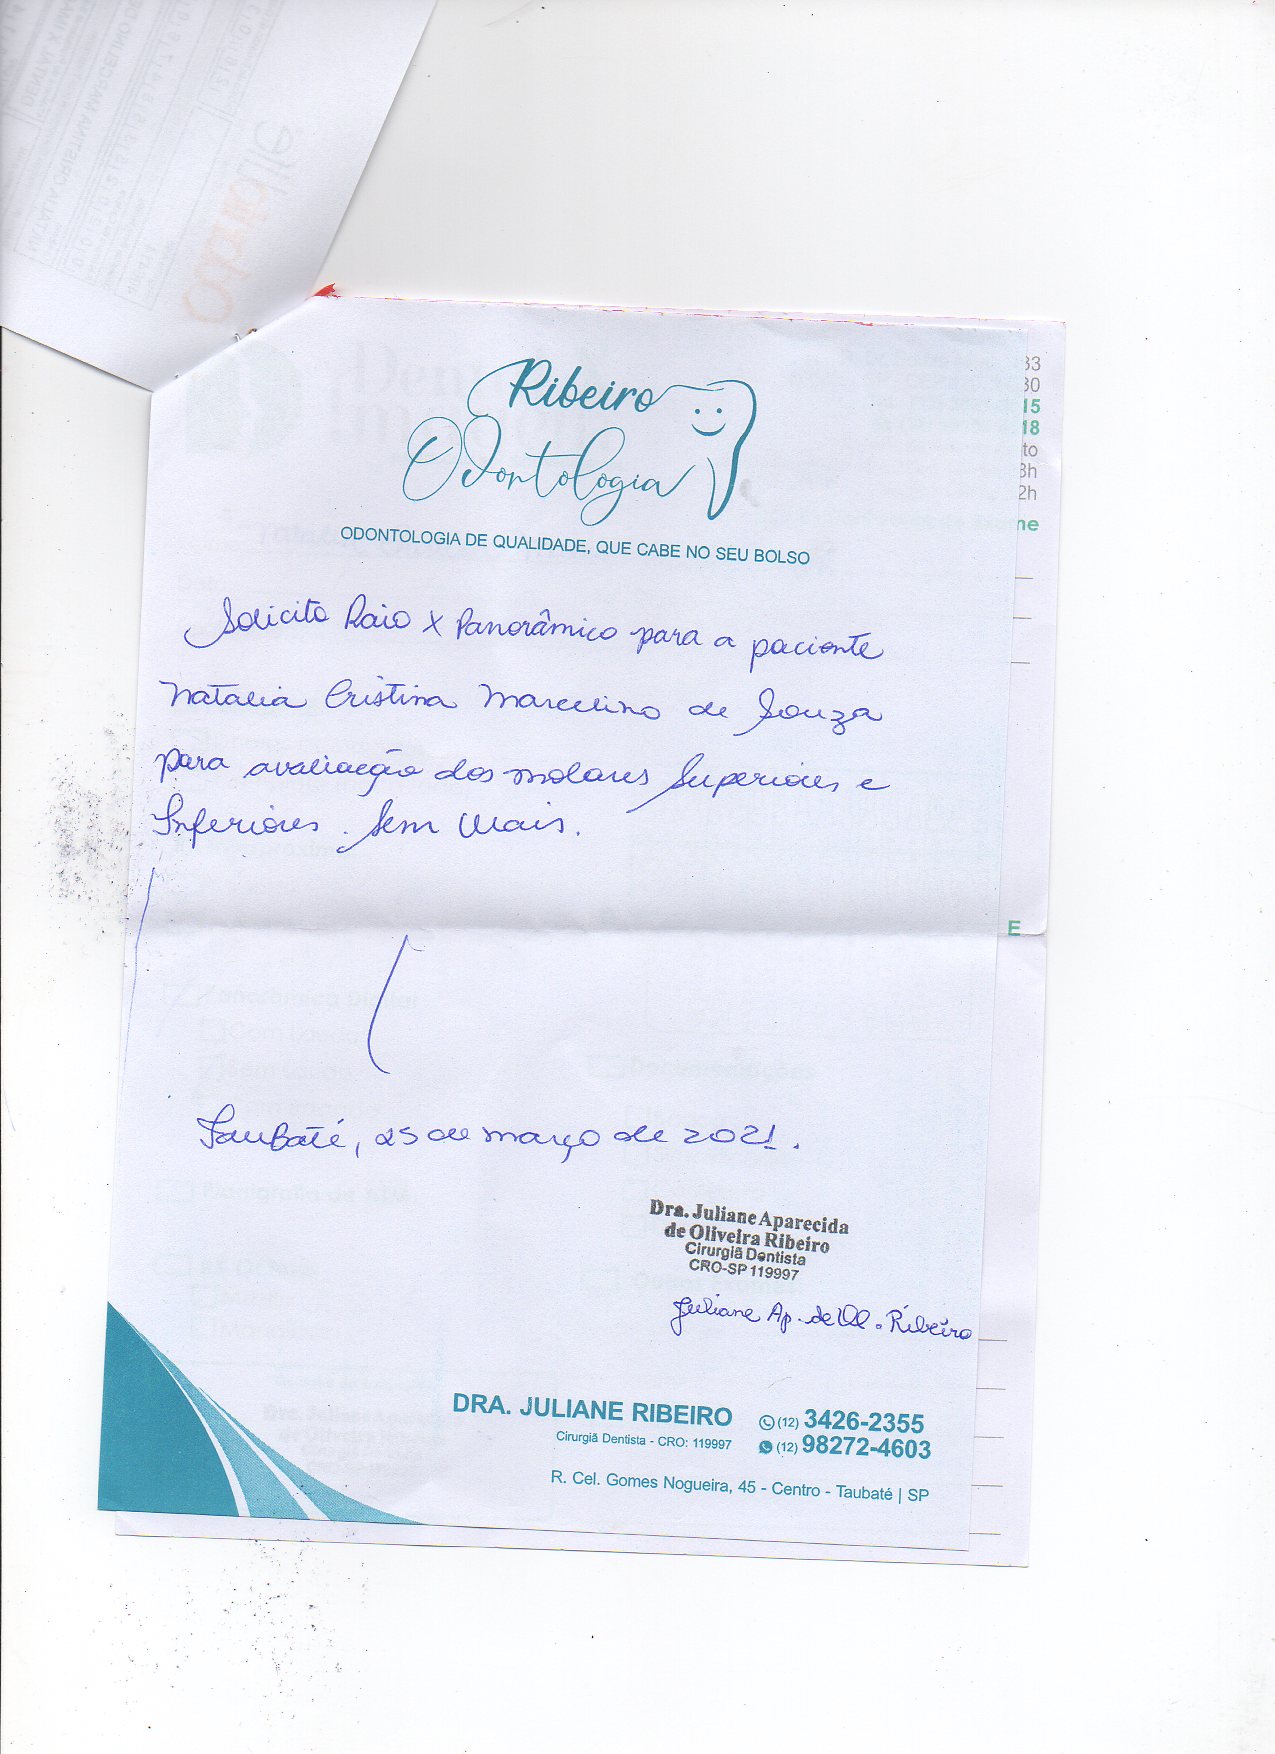 Ribeiro
Odontologia
ODONTOLOGIA DE QUALIDADE, QUE CABE NO SEU BOLSO
33
30
15
18
to
3h
2h
ne
Solicito Raio X Panorâmico para a paciente
Natalia Cristina Marcelino de Souza
para avaliação dos molares Superiores e
Inferiores. Sem Mais.
E
Taubaté, 25 de março de 2021.
Dra. Juliane Aparecida
de Oliveira Ribeiro
Cirurgiã Dentista
CRO-SP 119997
Juliane Ap. de Ol. Ribeiro
DRA. JULIANE RIBEIRO (12) 3426-2355
Cirurgiã Dentista - CRO: 119997 (12) 98272-4603
R. Cel. Gomes Nogueira, 45 - Centro - Taubaté | SP